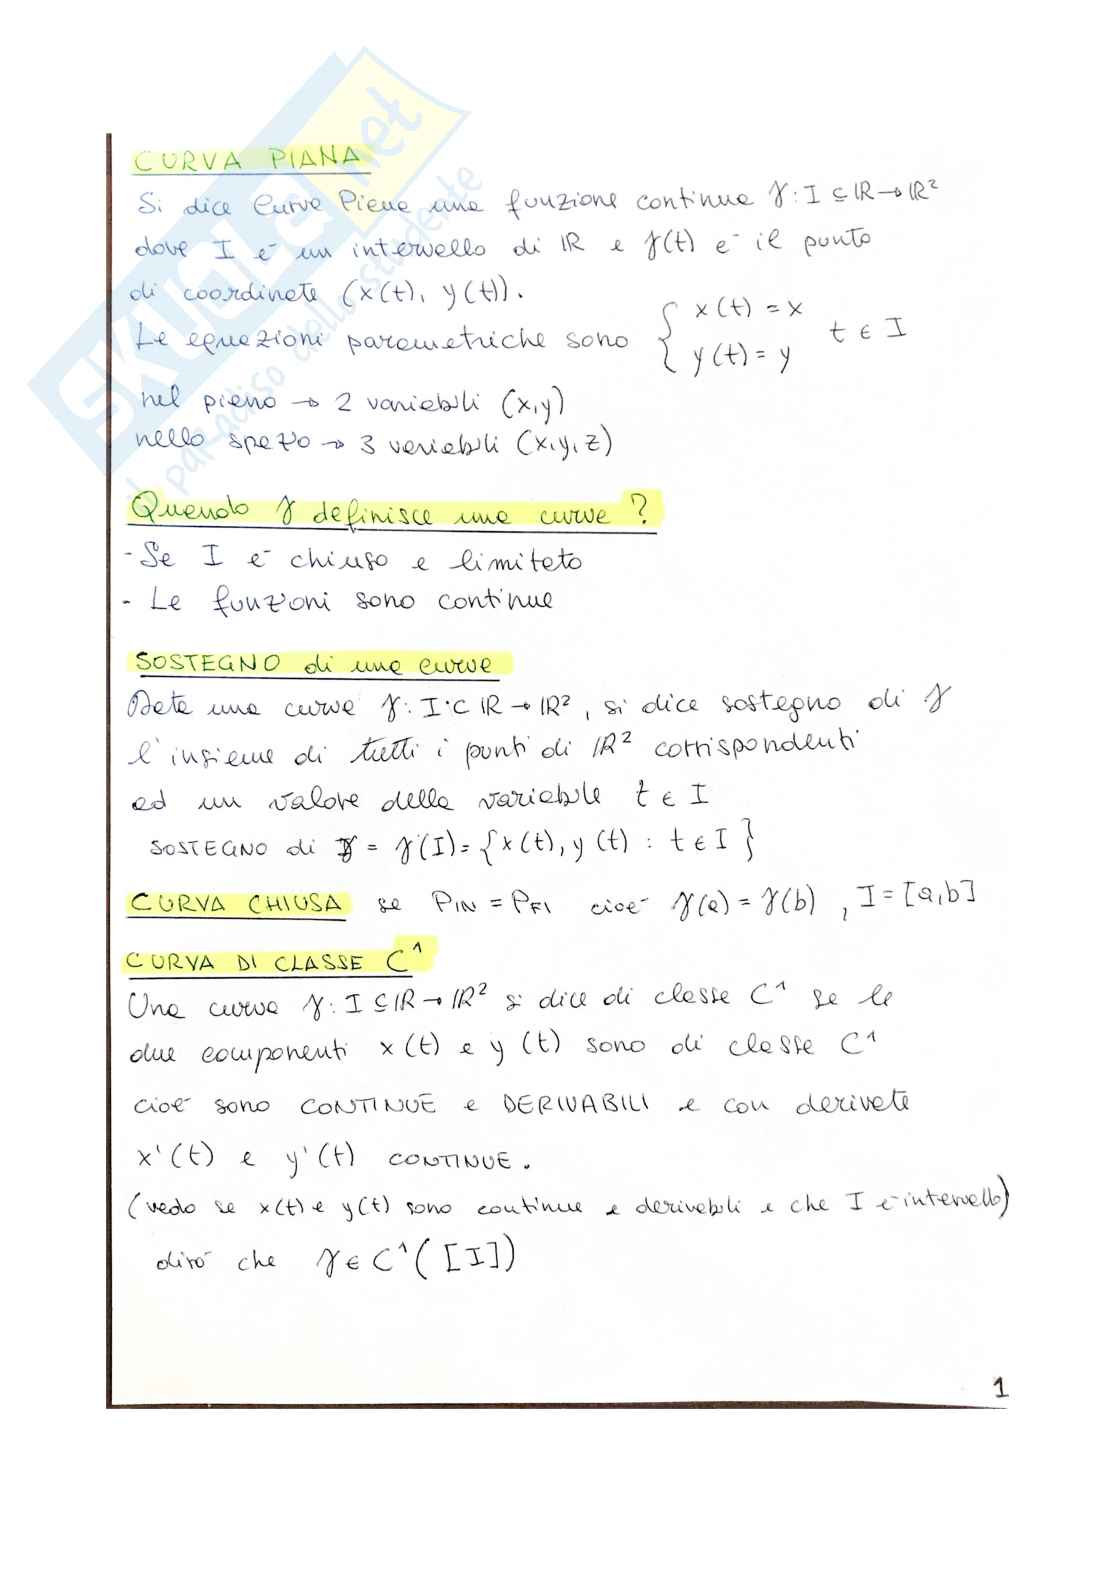 SKUOLA.net
il paradiso dello studente
CURVA PIANA
Si dice Curva Piana una funzione continua γ: I ⊆ ℝ → ℝ²
dove I è un intervallo di ℝ e γ(t) è il punto
di coordinate (x(t), y(t)).
Le equazioni parametriche sono { x(t) = x
y(t) = y t ∈ I
nel piano → 2 variabili (x,y)
nello spazio → 3 variabili (x,y,z)
Quando γ definisce una curva?
- Se I è chiuso e limitato
- Le funzioni sono continue
SOSTEGNO di una curva
Data una curva γ: I ⊂ ℝ → ℝ², si dice sostegno di γ
l'insieme di tutti i punti di ℝ² corrispondenti
ad un valore della variabile t ∈ I
SOSTEGNO di γ = γ(I) = {x(t), y(t) : t ∈ I}
CURVA CHIUSA se P_IN = P_FI cioè γ(a) = γ(b) , I = [a,b]
CURVA DI CLASSE C¹
Una curva γ: I ⊆ ℝ → ℝ² si dice di classe C¹ se le
due componenti x(t) e y(t) sono di classe C¹
cioè sono CONTINUE e DERIVABILI e con derivate
x'(t) e y'(t) CONTINUE.
(vedo se x(t) e y(t) sono continue e derivabili e che I è intervallo)
dirò che γ ∈ C¹([I])
1